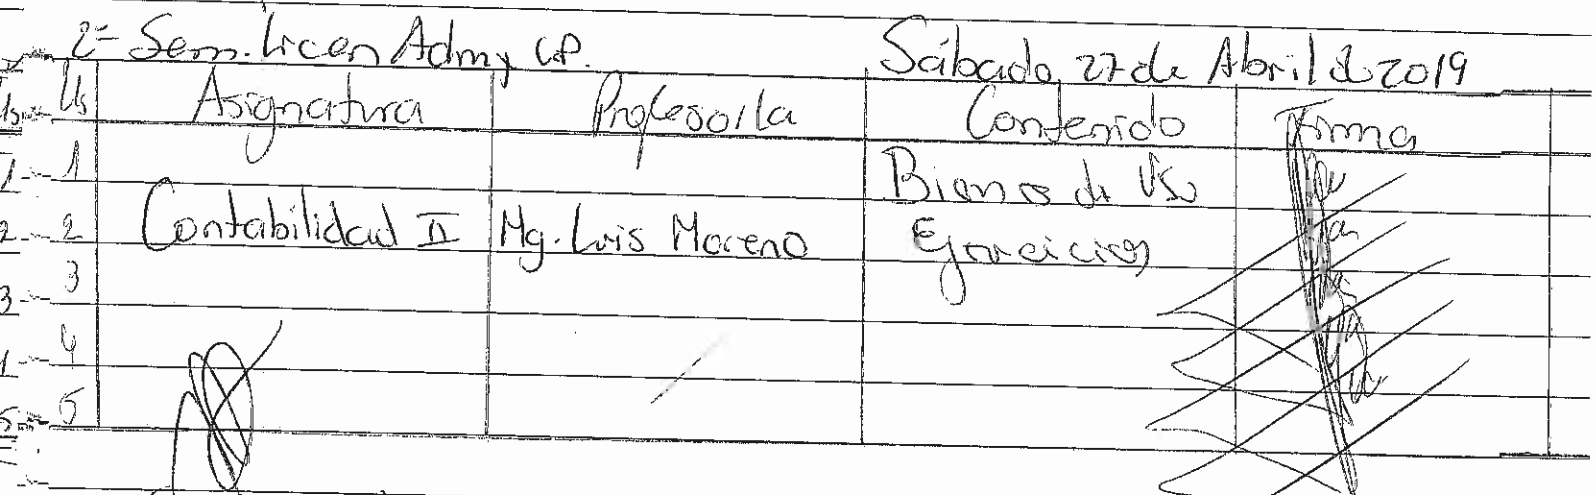 2- Sem. Licen Adm y CP. Sábado, 27 de Abril d 2019
Hs Asignatura Profesor/a Contenido Firma
1 Bienes de Uso
2 Contabilidad II Mg. Luis Moreno Ejercicios
3
4
5